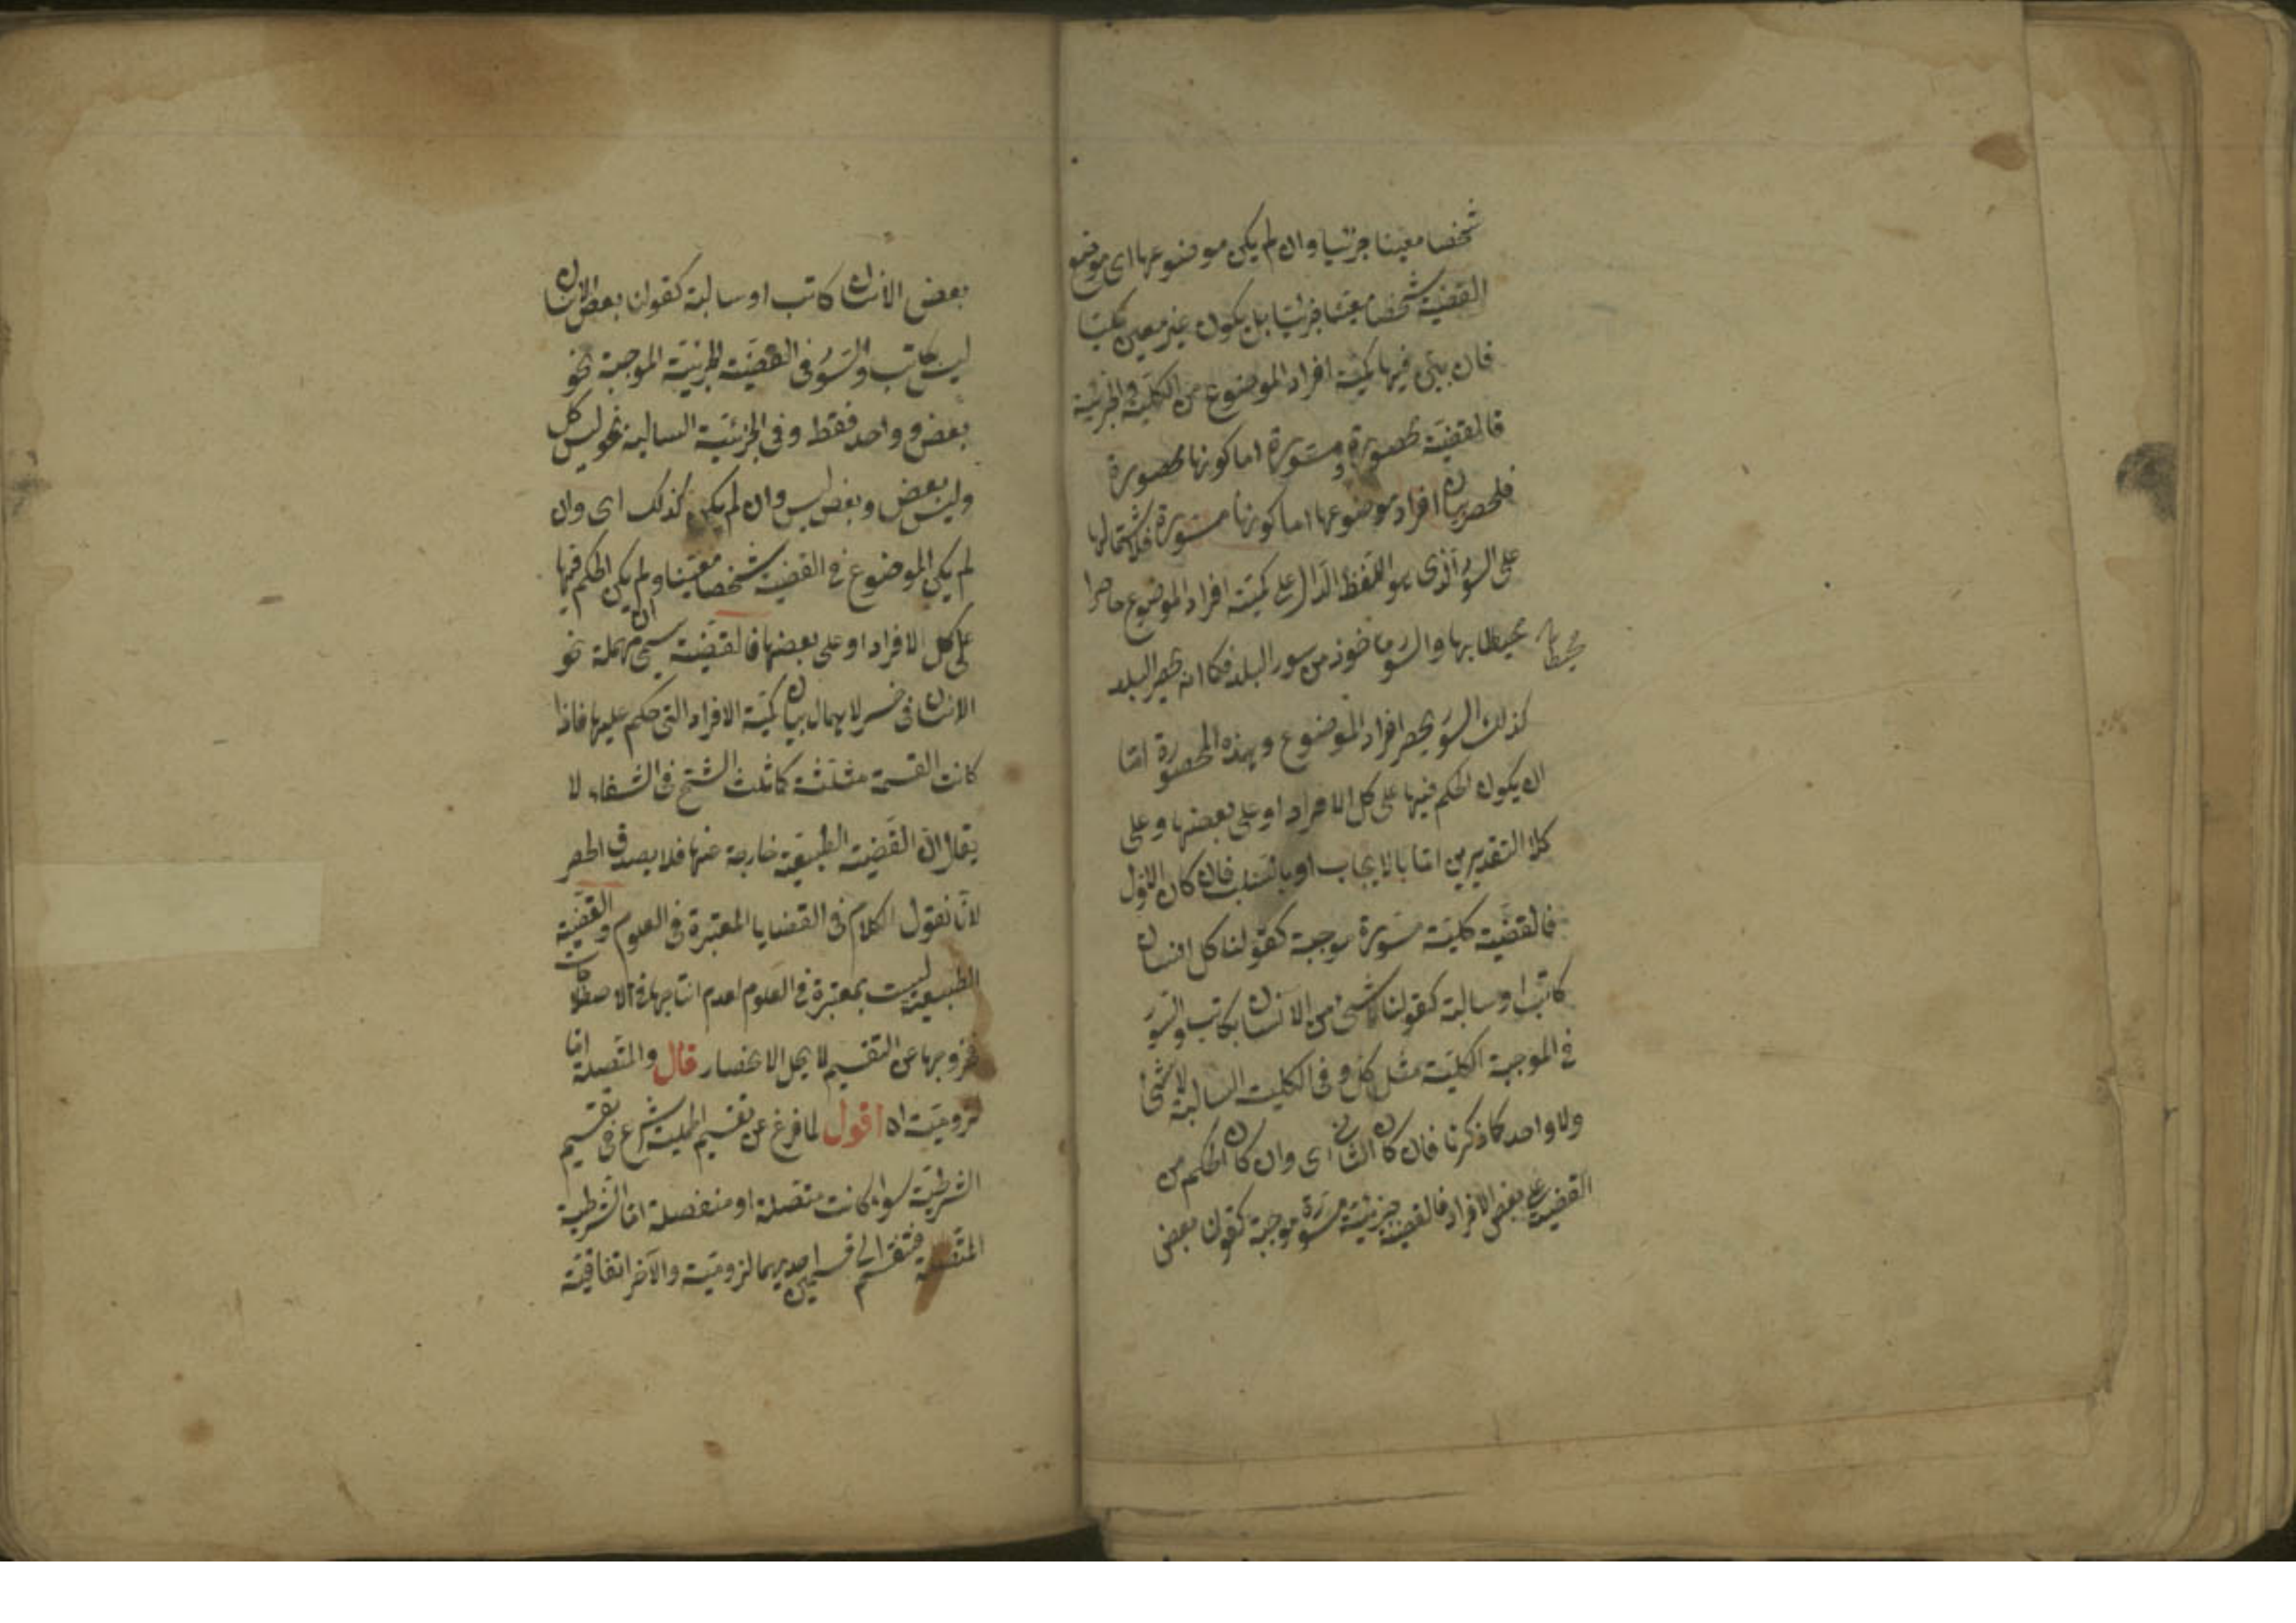 شخصا معينا جزئيا وان لم يكن موضوعها اى موضوع
القضية شخصا معينا جزئيا بل يكون غير معين كليا
فان بين فيها كمية افراد الموضوع من الكلية والجزئية
فالقضية محصورة ومسورة اما كونها محصورة
فلحصر بيان افراد موضوعها اما كونها مسورة فلاشتمالها
على السور الذى هو اللفظ الدال على كمية افراد الموضوع حاصرا
محيطا بها والسور ماخوذ من سور البلد فكما انه يحصر البلد
محيطا بها
كذلك السور يحصر افراد الموضوع وهذه المحصورة اما
ان يكون الحكم فيها على كل الافراد او على بعضها وعلى
كلا التقديرين اما بالايجاب او بالسلب فان كان الاول
فالقضية كلية مسورة موجبة كقولنا كل انسان
كاتب او سالبة كقولنا لا شئ من الانسان بكاتب والسور
فى الموجبة الكلية مثل كل وفى الكلية السالبة لا شئ
ولا واحد كما ذكرنا فان كان الثانى اى وان كان الحكم من
القضية على بعض الافراد فالقضية جزئية مسورة موجبة كقولنا بعض
بعض الانسان كاتب او سالبة كقولنا بعض الانسان
ليس بكاتب والسور فى القضية الجزئية الموجبة نحو
بعض و واحد فقط وفى الجزئية السالبة نحو ليس كل
وليس بعض وبعض ليس وان لم يكن كذلك اى وان
لم يكن الموضوع فى القضية شخصا معينا ولم يكن الحكم فيها
على كل الافراد او على بعضها فالقضية يسمى مهملة نحو
الانسان فى خسر لاهمال بيان كمية الافراد التى حكم عليها فاذا
كانت القسمة مثلثة كما ثلث الشيخ فى الشفاء لا
يقال ان القضية الطبيعية خارجة عنها فلا يصدق الحصر
لانا نقول الكلام فى القضايا المعتبرة فى العلوم والقضية
الطبيعية ليست بمعتبرة فى العلوم لعدم انتاجها فى الاصطلاحات
فخروجها عن التقسيم لا يخل الانحصار قال والمتصلة اما
لزومية اه اقول لما فرغ عن تقسيم الحملية شرع فى تقسيم
الشرطية سواء كانت متصلة او منفصلة اما الشرطية
المتصلة فتنقسم الى قسمين احديهما لزومية والآخر اتفاقية